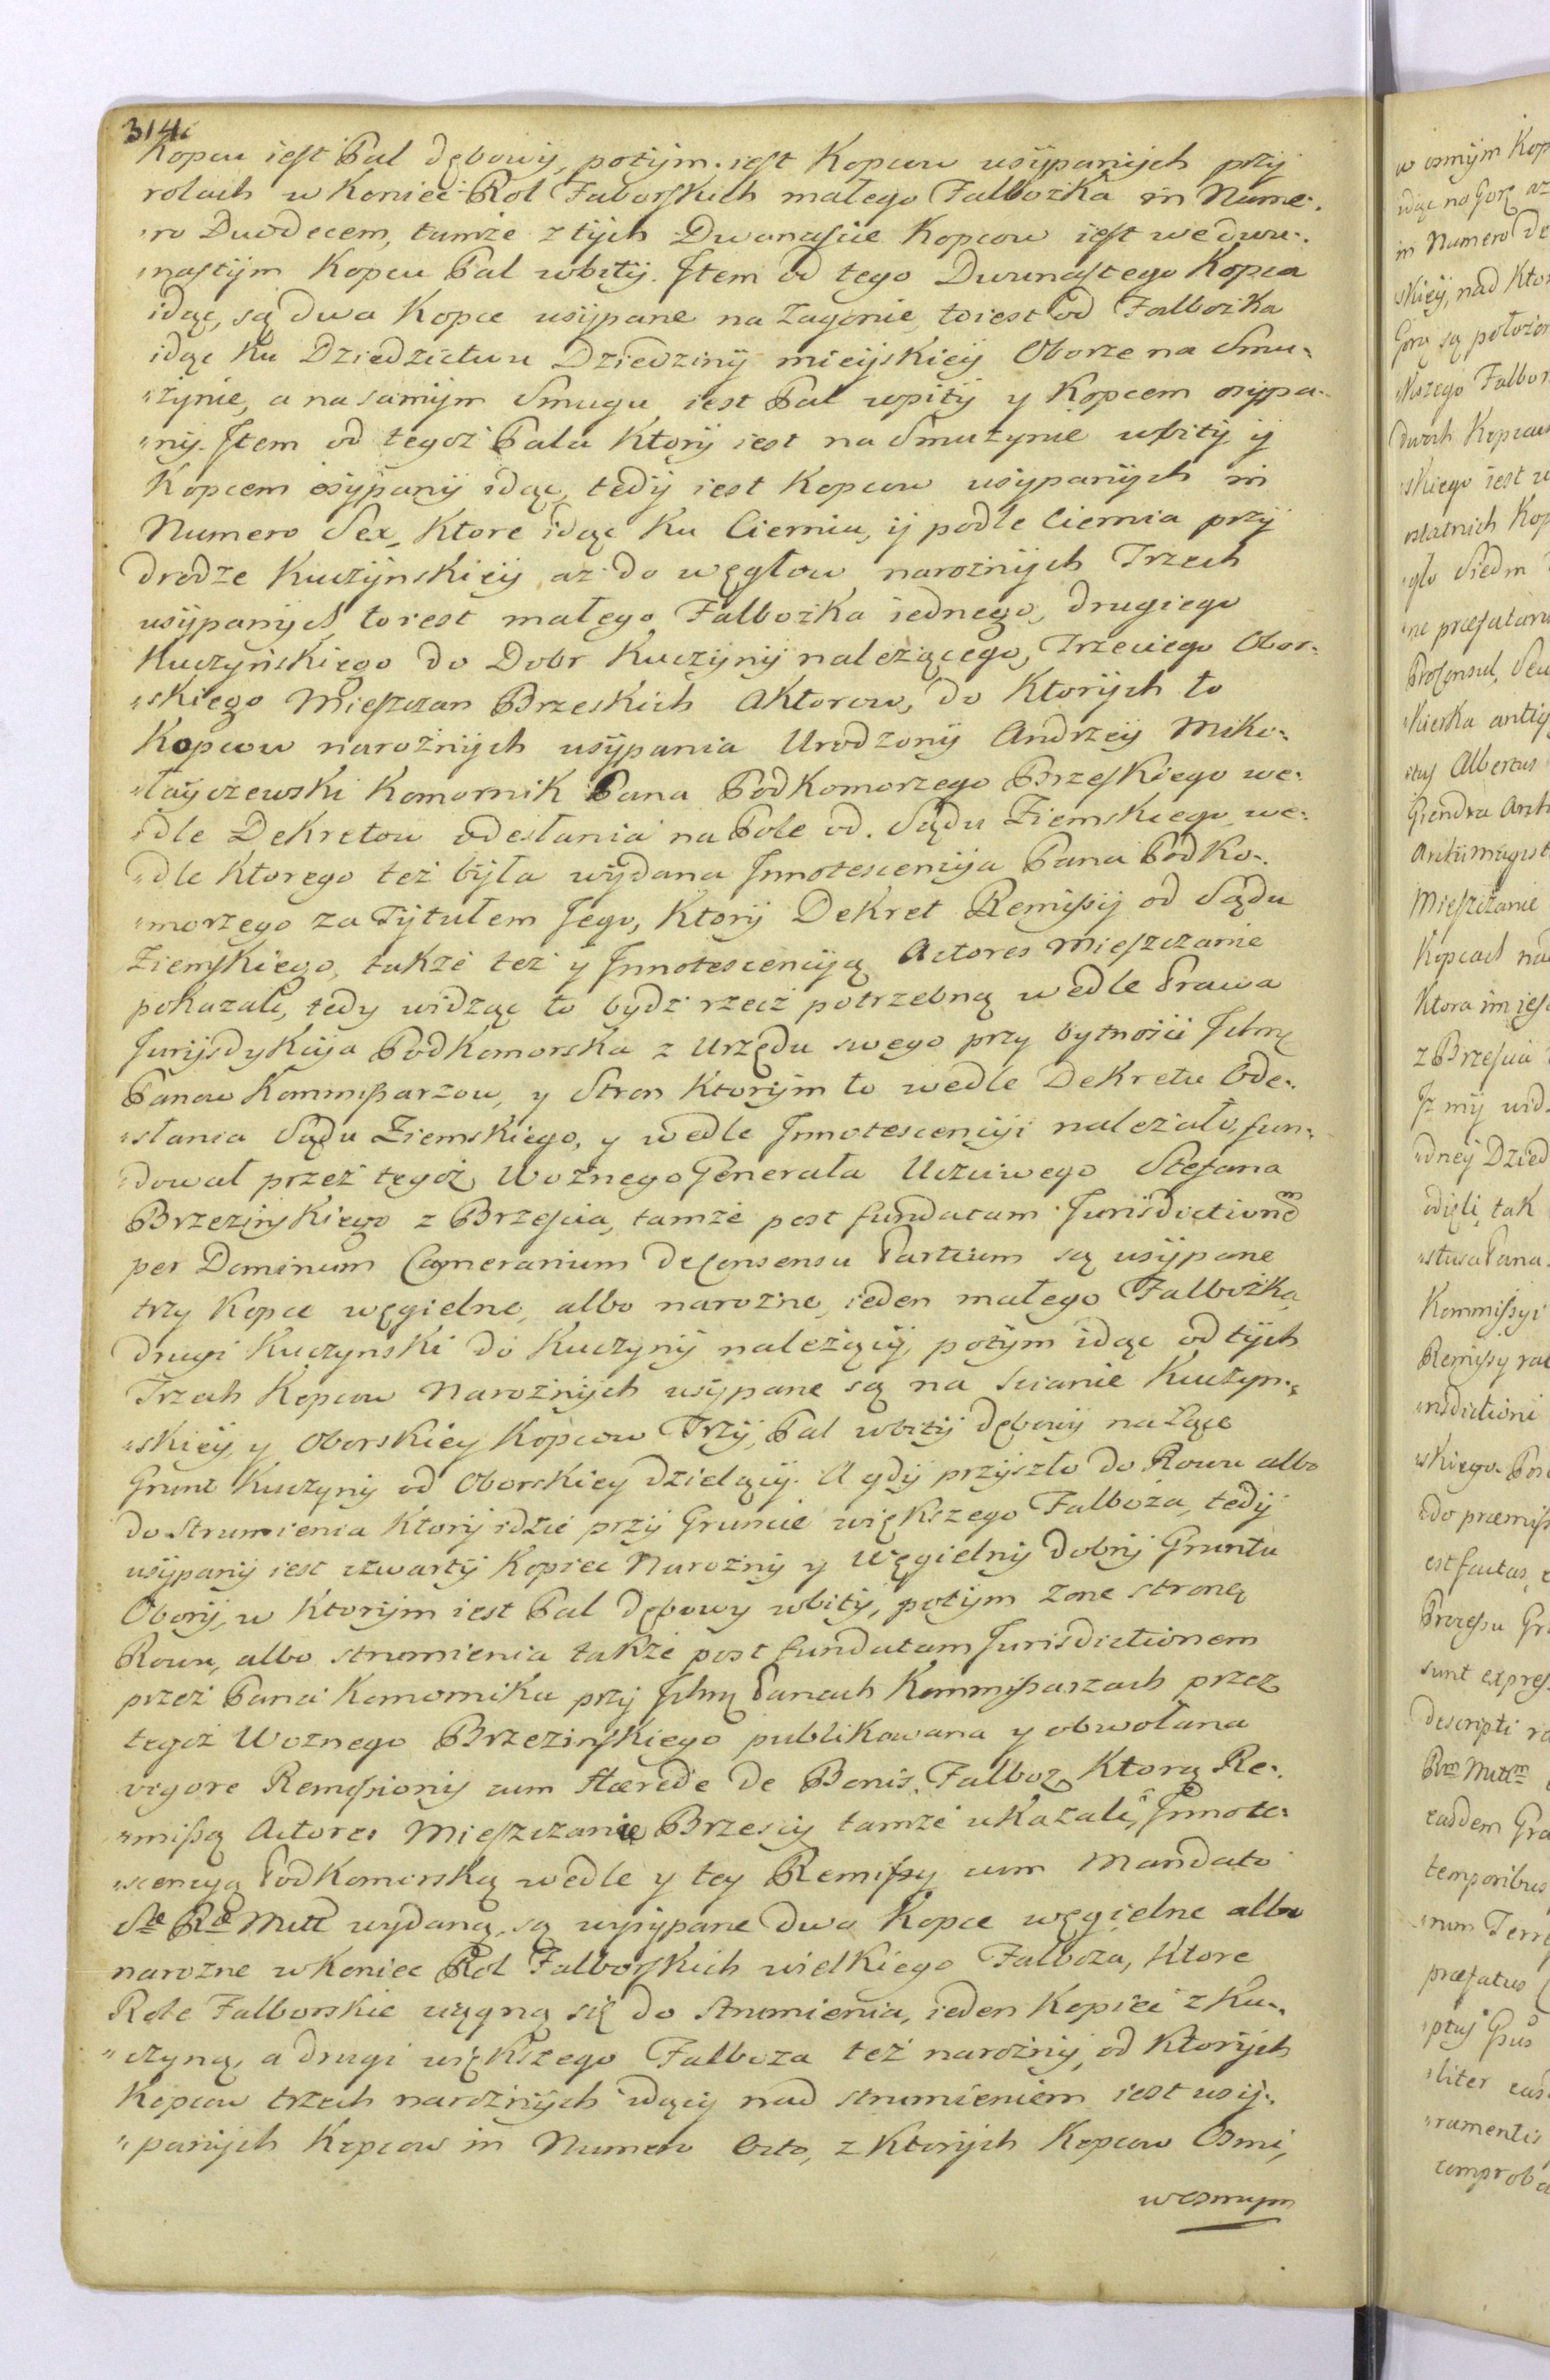 314.
Kopcu iest Pal dębowÿ, potÿm iest Kopcow usÿpanÿch przÿ
rolach w Koniec Rol Faborskich małego Falbożka in Nume-
ro Duodecem, tamże z tÿch Dwanaście Kopcow iest we dwu-
nastÿm Kopcu Pal wbitÿ. Item od tego Dwunastego Kopca
idąc, są dwa Kopce usÿpane na Zagonie, toiest od Falbożka
idąc Ku Dziedzictwu Dziedzinÿ mieÿskieÿ Oborze na Smu-
żynie, a na samÿm Smugu iest Pal wpitÿ y Kopcem osypa-
nÿ. Item od tegoż Pala Ktorÿ iest na Smużynie wbitÿ ÿ
Kopcem osÿpanÿ idąc, tedÿ iest Kopcow usÿpanÿch in
Numero Sex, Ktore idąc Ku Cierniu, ÿ podle Ciernia przÿ
drodze Kuczÿnskieÿ aż do węgłow narożnÿch Trzech
usÿpanÿch to iest małego Falbożka iednego, drugiego
Kuczyńskiego do Dobr Kuczÿnÿ należącego, Trzeciego Obor-
skiego Mieszczan Brzeskich Aktorow, do Ktorÿch to
Kopcow narożnÿch usÿpania Urodzonÿ Andrzeÿ Miko-
łaÿczewski Komornik Pana PodKomorzego Brzeskiego we-
dle Dekretow odesłania na Pole od Sądu Ziemskiego, we-
dle Ktorego też bÿła wÿdana Innotescencÿa Pana PodKo-
morzego za Tÿtułem Jego, Ktorÿ Dekret Remissÿ od Sądu
Ziemskiego, także też y Innotescencÿą Actores Mieszczanie
pokazali, tedy widząc to bydź rzecz potrzebną wedle Prawa
Jurÿsdykcÿa PodKomorska z Urzędu swego przy bytności Ichmę
Panow Kommissarzow, y Stron Ktorÿm to wedle Dekretu Ode-
słania Sądu Ziemskiego, y wedle Innotescencÿi należało, fun-
dował przez tegoż Woźnego Generała Uczciwego Stefana
Brzezinskiego z Brzescia, tamże post fundatam Jurisdictionem
per Dominum Camerarium de Consensu Partium są usÿpane
trzy Kopce węgielne, albo narożne, ieden małego Falbożka,
drugi Kuczynski do Kuczynÿ należącÿ, potÿm idąc od tÿch
Trzech Kopcow Narożnÿch usÿpane są na Scianie Kuczyn-
skieÿ, y Oborskiey Kopcow Trzÿ, Pal wbitÿ dębowÿ na Łące
Grunt Kuczynÿ od Oborskiey dzielącÿ. A gdÿ przÿszło do Rowu albo
do Strumienia Ktorÿ idzie przÿ Gruncie większego Falboża, tedÿ
usÿpanÿ iest czwartÿ Kopiec Narożnÿ y Węgielnÿ dobrÿ Gruntu
Oborÿ, w Ktorÿm iest Pal dębowy wbitÿ, potÿm z one stronę
Rowu, albo strumienia także post fundatam Jurisdictionem
przez Pana Komornika przÿ Ichmę Panach Kommissarzach przez
tegoż Woźnego Brzezinskiego publikowana y obwołana
vigore Remissionis cum Hærede de Bonis Falboz, Ktorą Re-
missą Actores Mieszczanie Brzescÿ tamże ukazali, Innote-
scencyą PodKomorską wedle y tey Remissy cum Mandato
Sæ Ræ Mtt wydaną, są wysypane dwa Kopce węgielne albo
narożne w Koniec Rol Falborskich wielkiego Falboża, Ktore
Role Falborskie ciągną się do Strumienia, ieden Kopiec z Ku-
czyną, a drugi większego Falboza też narożnÿ, od Ktorÿch
Kopcow trzech narożnÿch idącÿ nad strumieniem iest usÿ-
panÿch Kopcow in Numero Octo, z Ktorÿch Kopcow Osmi,
w osmym
w osmÿm Kop
idąc na Gorę aż
in Numero de
skieÿ, nad Ktor
Gorą są położon
kszego Falbor
dwoch Kopcach
skiego iest w
ostatnich Kop
gło Siedm
ne præfatam
ProConsul, Seu
tus Albertus
Mieszczanie
Kopcach nad
Ktora im iest
z Brzescia
Iż mÿ wid
dneÿ Dzied
odięli, tak
Kommissyi
Remissy
risdictioni
skiego. Pos
do præmiss
est factas,
Processu Gr
sunt express
descripti
easdem Gra
temporibus
num Terr
præfatus
liter eas
ramentis
comproba